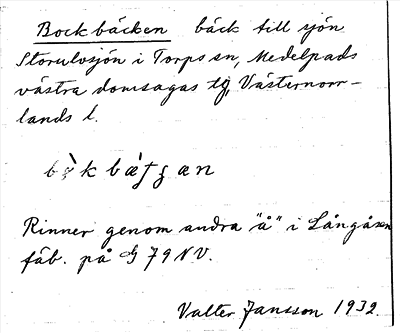 Bockbäcken bäck till sjön
Storulvsjön i Torps sn, Medelpads
västra domsagas tg, Västernorr-
lands l.
Rinner genom andra "å" i Långåsen
fäb. på G 79 NV.
Valter Jansson 1932.